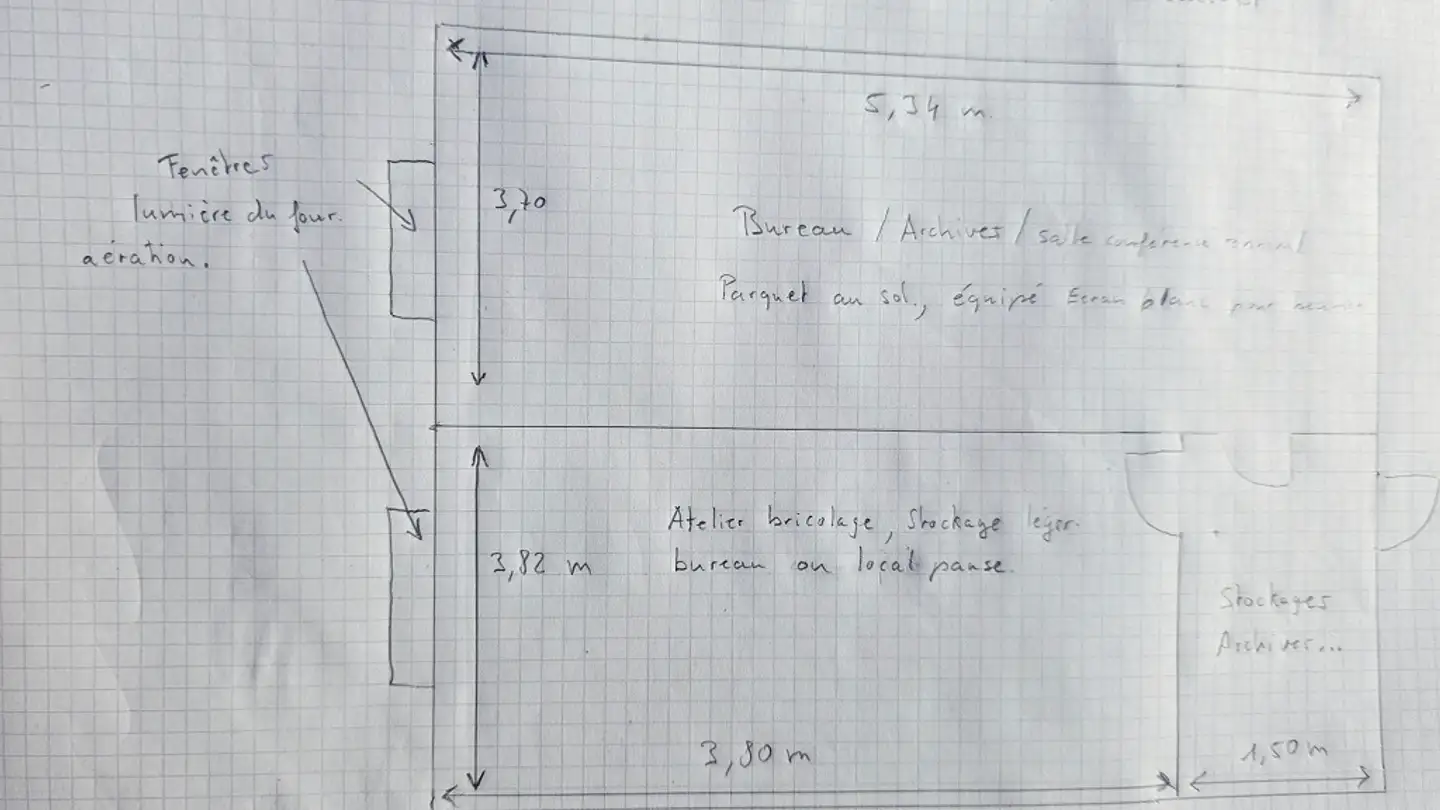 5,34 m.
Fenêtres
lumière du jour.
aération.
3,70
Bureau / Archives / salle conférence
Parquet au sol, équipé Ecran blanc pour
Atelier bricolage, Stockage léger.
bureau ou local pause.
3,82 m
Stockages
Archives...
3,80 m
1,50 m